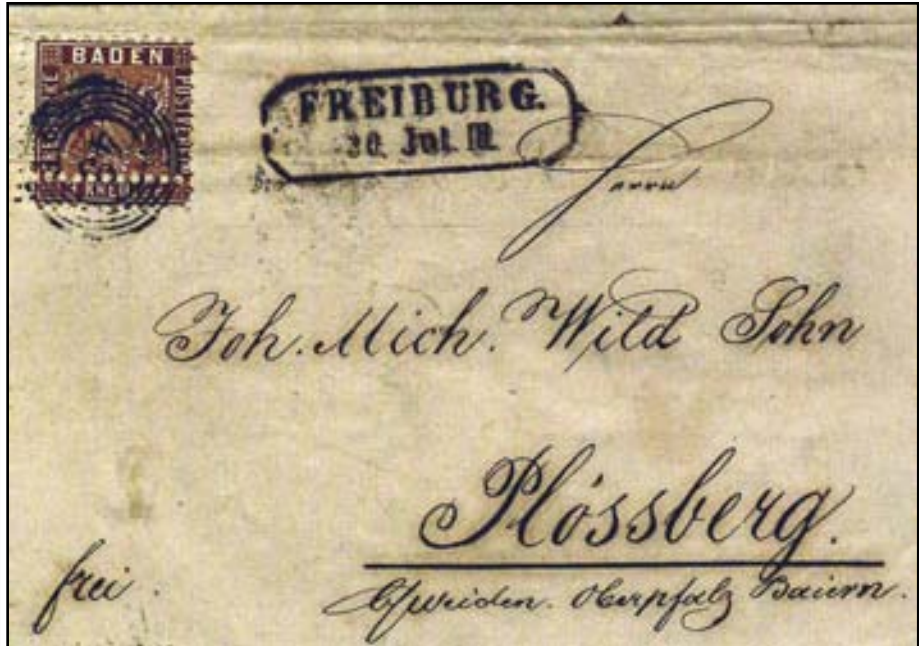 BADEN
FREIBURG.
30. Jul. III.
Herrn
Joh. Mich. Wild Sohn
Plössberg.
frei.
b/weiden. Oberpfalz Baiern.